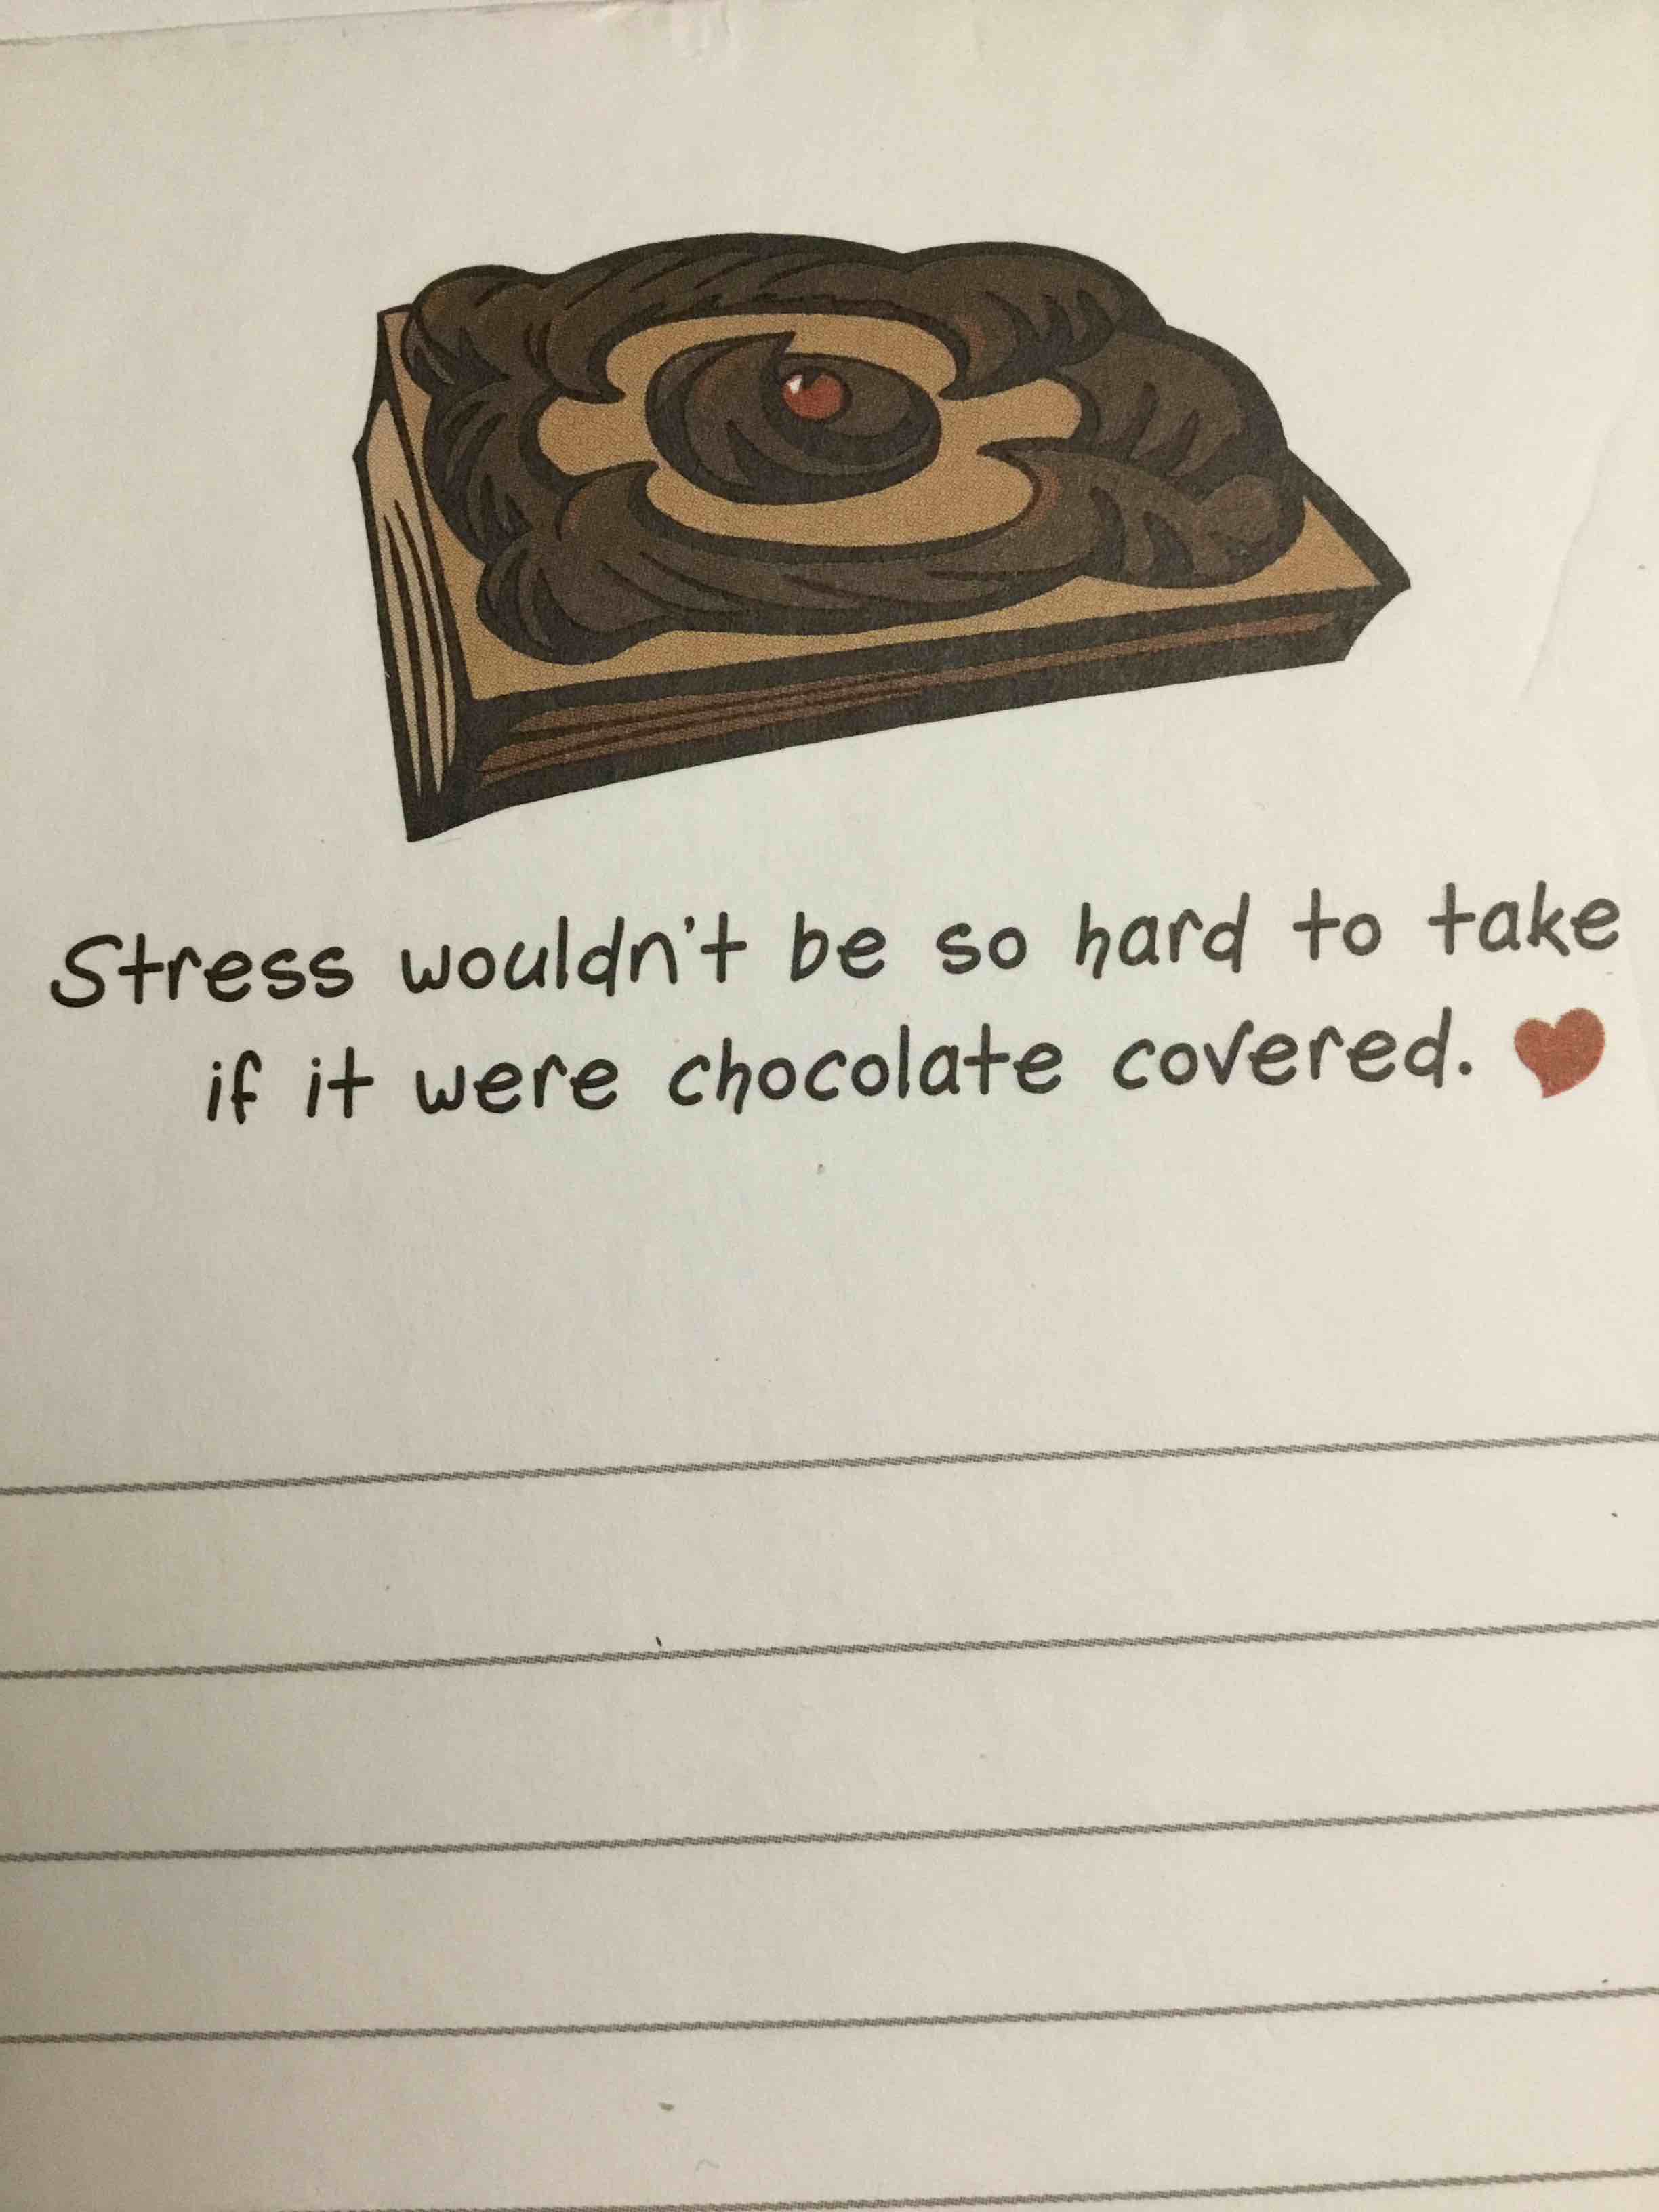 Stress wouldn't be so hard to take
if it were chocolate covered. ♥